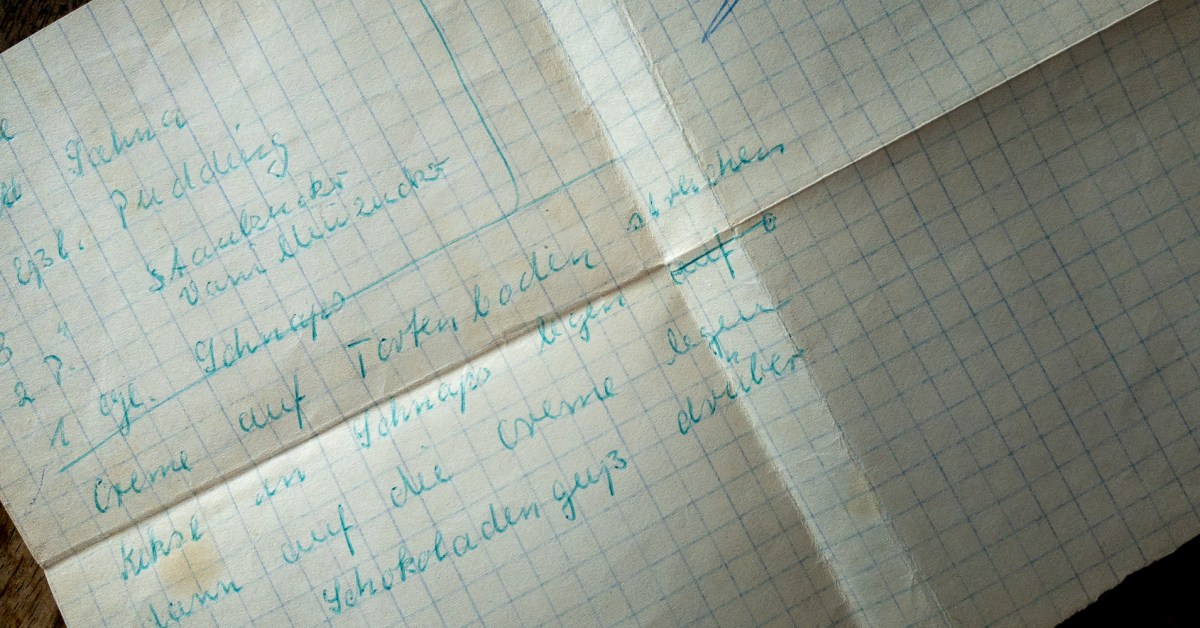 Sahne
Eßl. Pudding
3 " Staubzucker
2 P. Vanillinzucker
1 Schnaps
Creme auf Tortenboden streichen
Kekse in Schnaps legen auf
dann auf die Creme legen
Schokoladenguß drüber